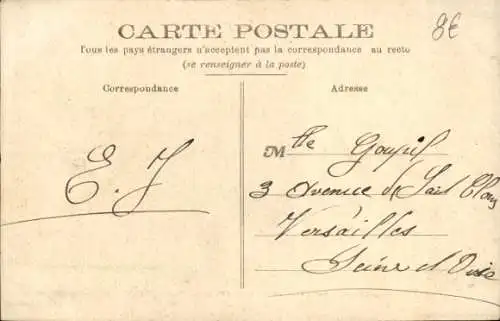 CARTE POSTALE
8€
Tous les pays étrangers n'acceptent pas la correspondance au recto
(se renseigner à la poste)
Correspondance
Adresse
E. J
Mlle Goupil
3 Avenue de Saint Cloud
Versailles
Seine et Oise